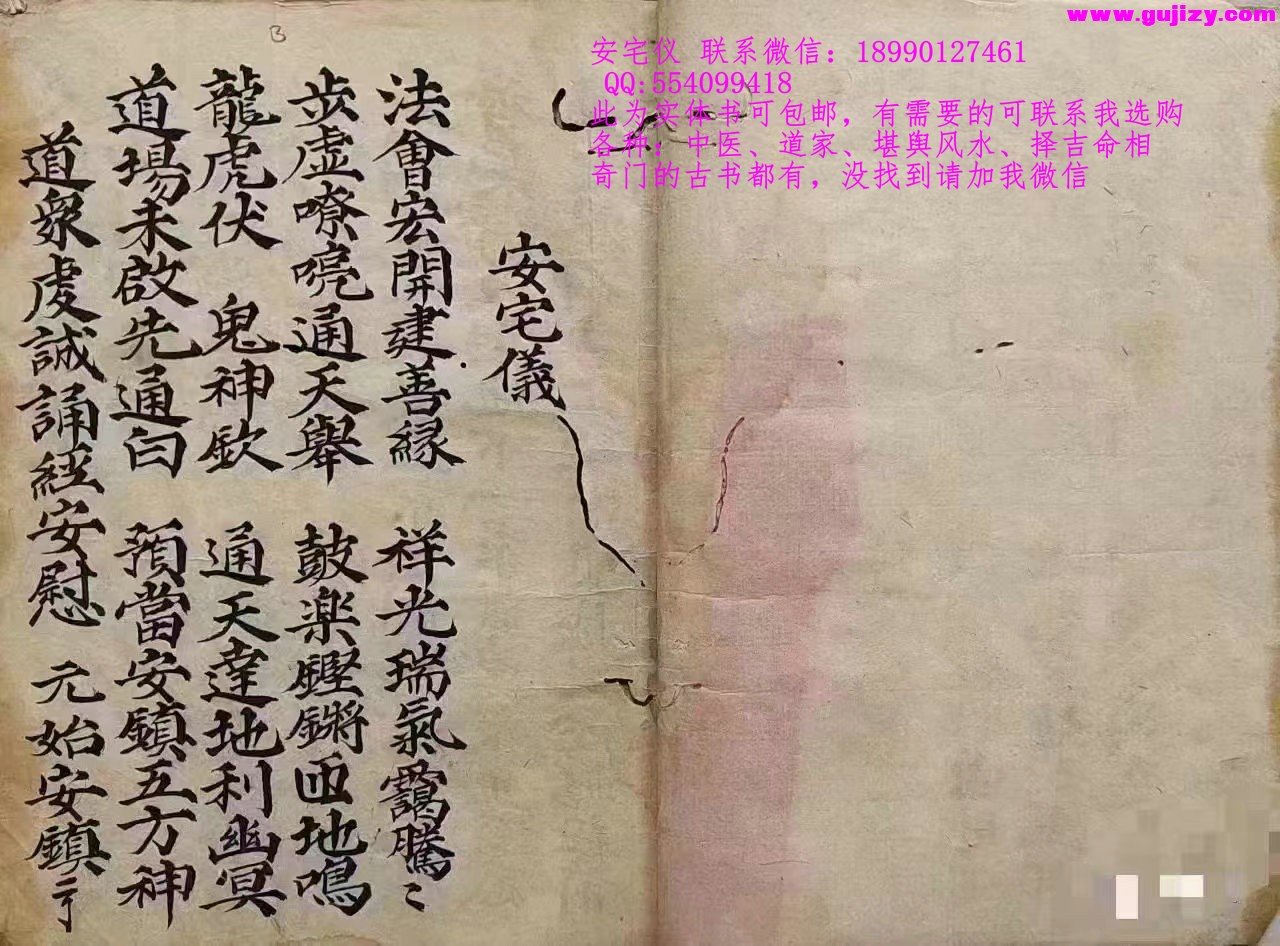 www.gujizy.com
安宅仪 联系微信：18990127461
QQ:554099418
此为实体书可包邮，有需要的可联系我选购
各种：中医、道家、堪舆风水、择吉命相
奇门的古书都有，没找到请加我微信
安宅儀
法會宏開建善緣 祥光瑞氣靄騰〻
步虛嘹喨通天舉 鼓楽鏗鏘匝地鳴
龍虎伏 鬼神欽 通天達地利幽冥
道場未啟先通白 預當安鎮五方神
道衆虔誠誦經安慰 元始安鎮